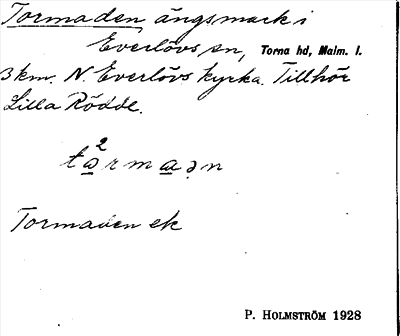 Tormaden ängsmark i
Everlövs sn, Torna hd, Malm. l.
3 km. N. Everlövs kyrka. Tillhör
Lilla Rödde.
ta²rmaən
Tormaden ek
P. HOLMSTRÖM 1928